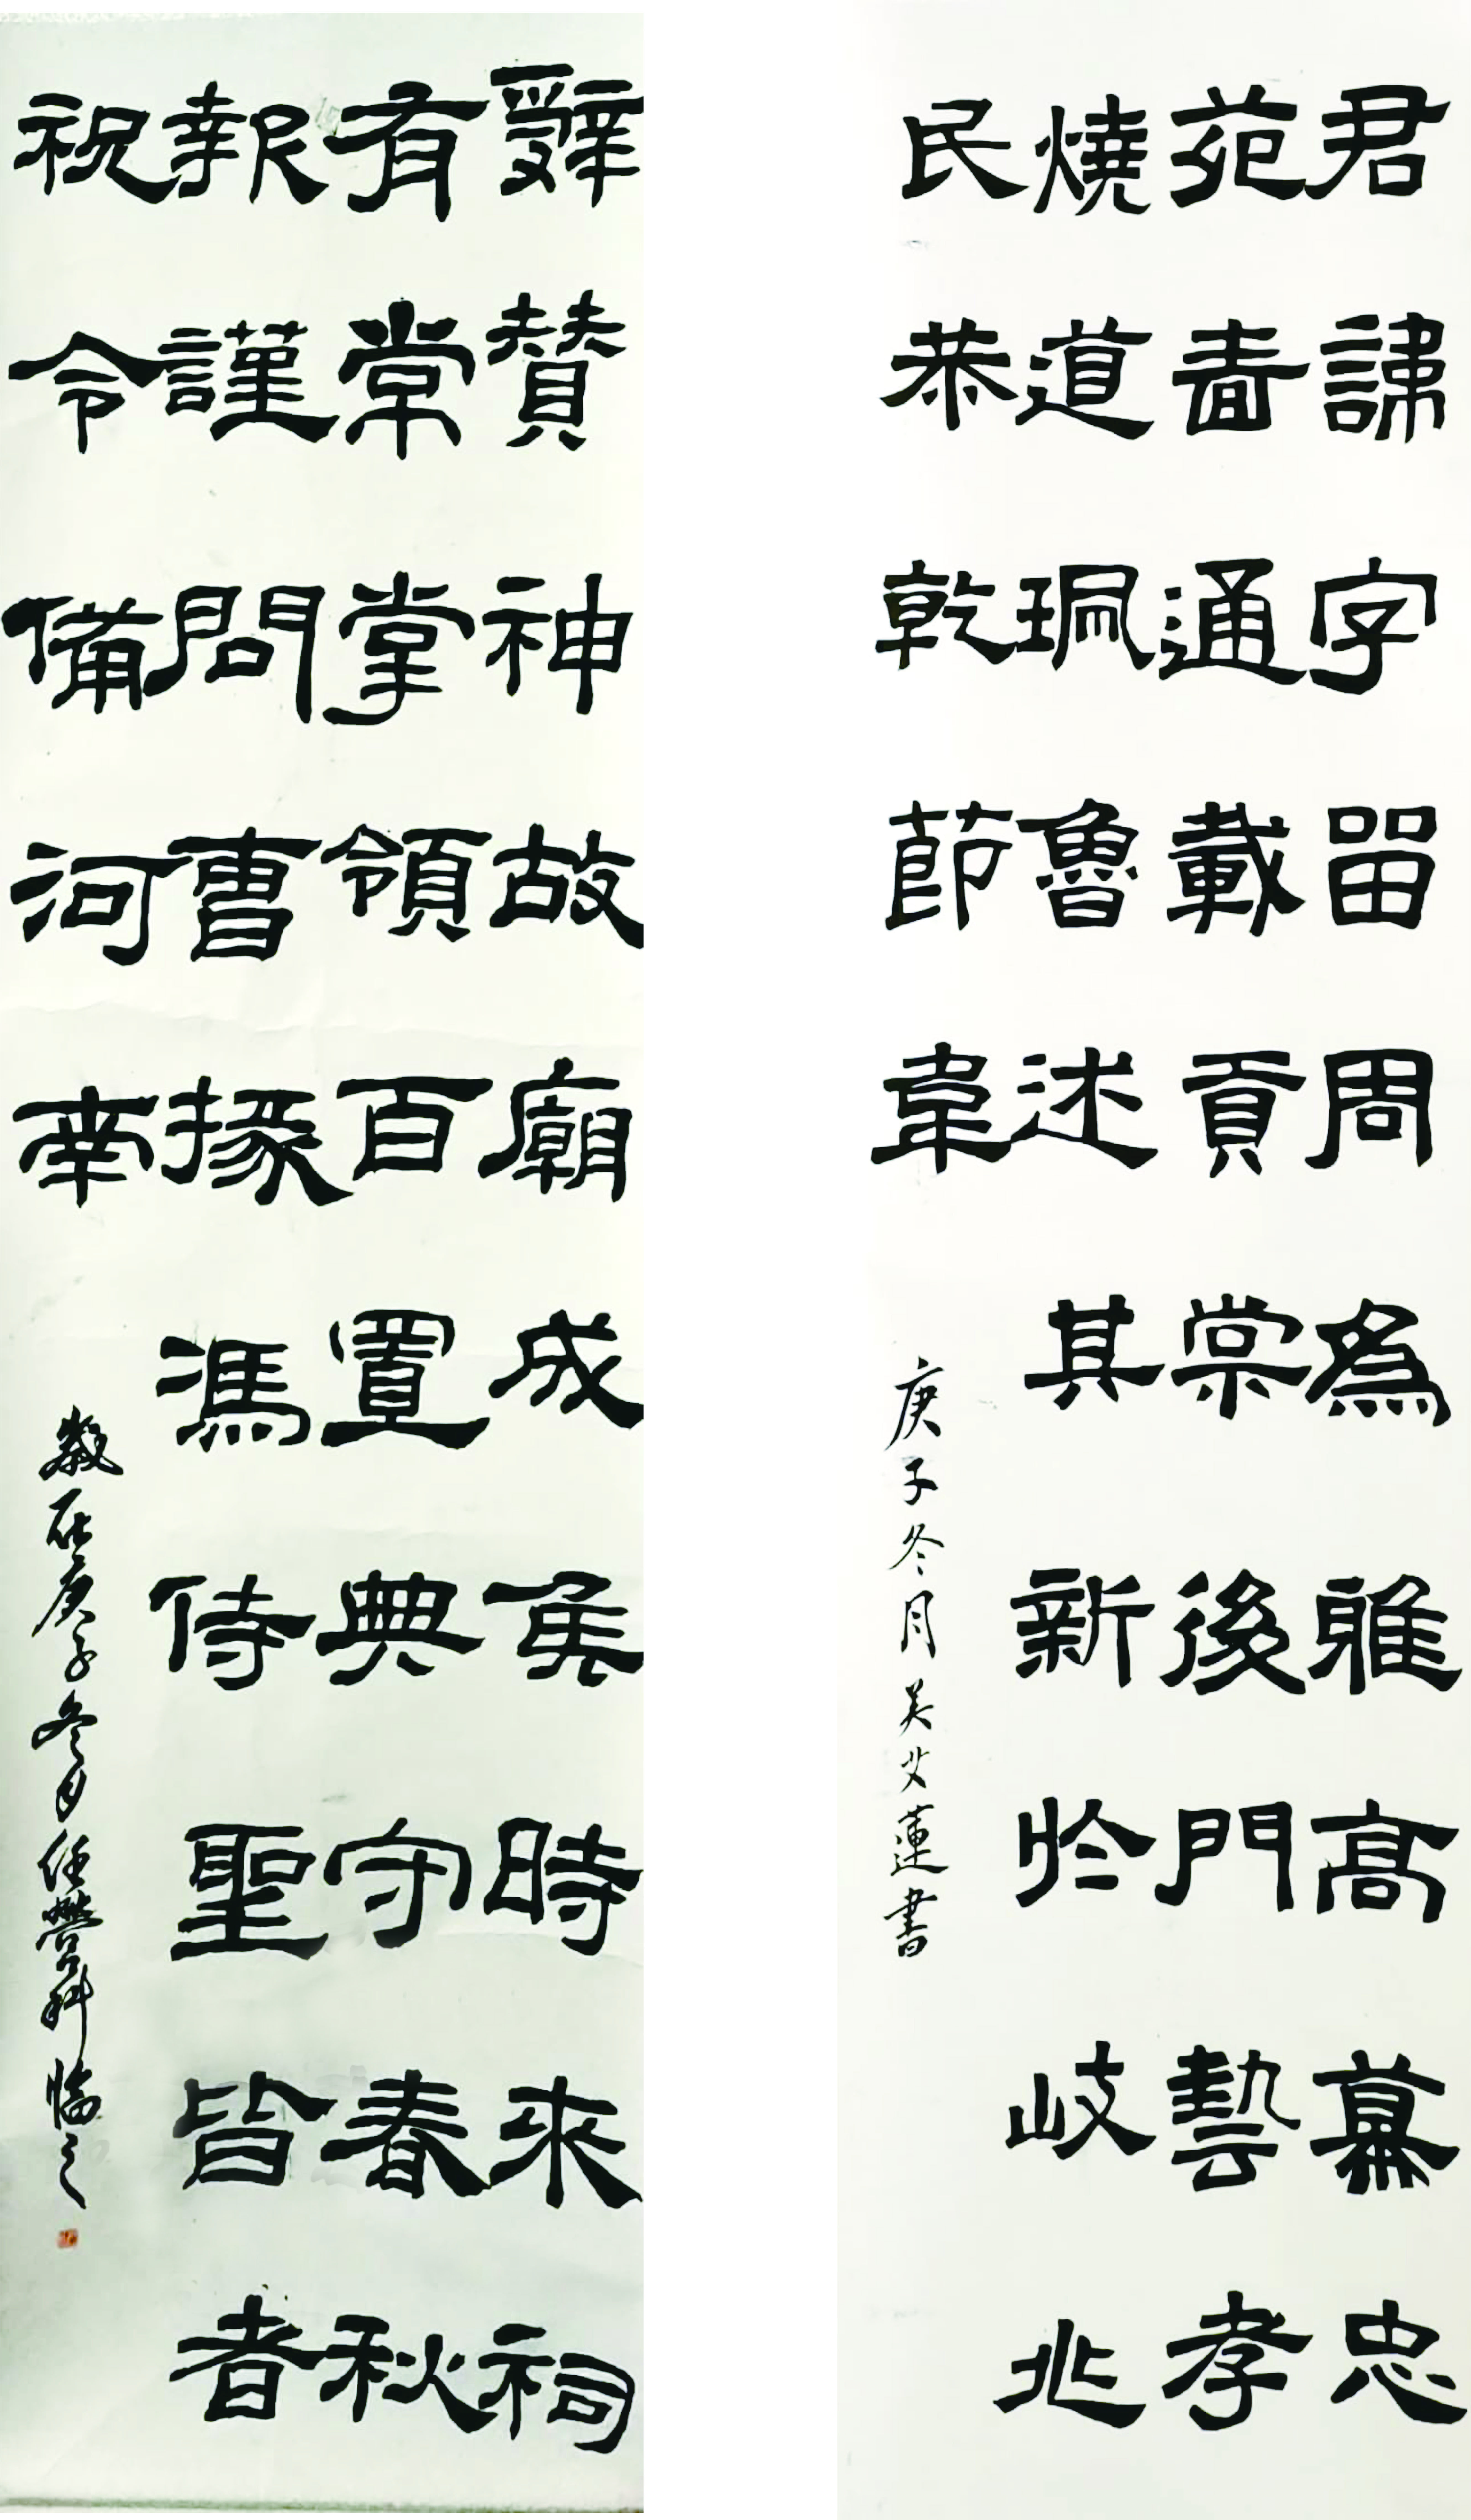 君諱字畱周為雅高慕忠
苑畫通載貢棠後門藝孝
燒道珮魯述其新於岐兆
民恭乾節韋
庚子冬月吴艾蓮書
辤贊神故廟成矦時來祠
有常掌領百置典守春秋
報謹問曹掾馮侍聖皆者
祝令備河南
歲在庚子冬月任科臨之